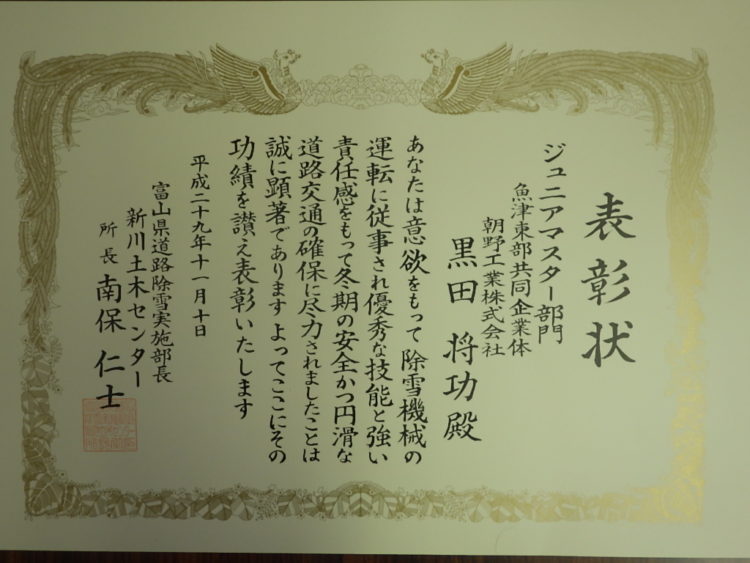 表彰状
ジュニアマスター部門
魚津東部共同企業体
朝野工業株式会社
黒田将功殿
あなたは意欲をもって除雪機械の
運転に従事され優秀な技能と強い
責任感をもって冬期の安全かつ円滑な
道路交通の確保に尽力されましたことは
誠に顕著であります よってここにその
功績を讃え表彰いたします
平成二十九年十一月十日
富山県道路除雪実施部長
新川土木センター
所長 南保仁士